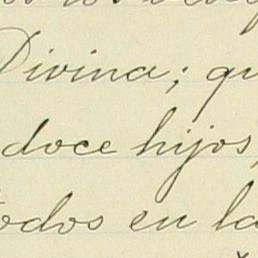 Divina; qu
doce hijos,
todos en la